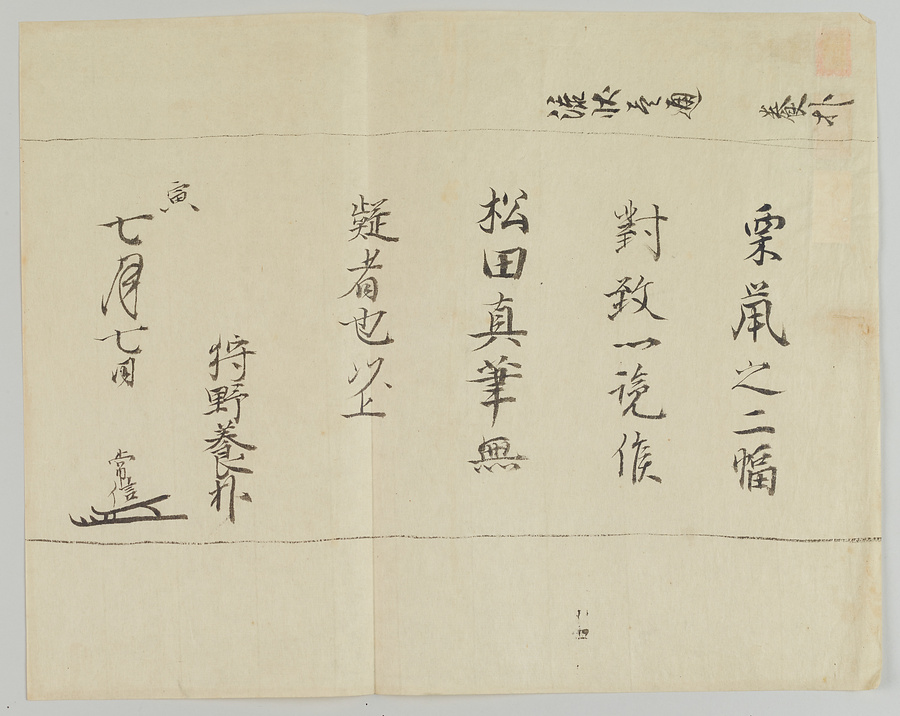 養朴
栗鼠之二幅
對致一覧候
松田真筆無
疑者也以上
狩野養朴
寅
七月七日
常信